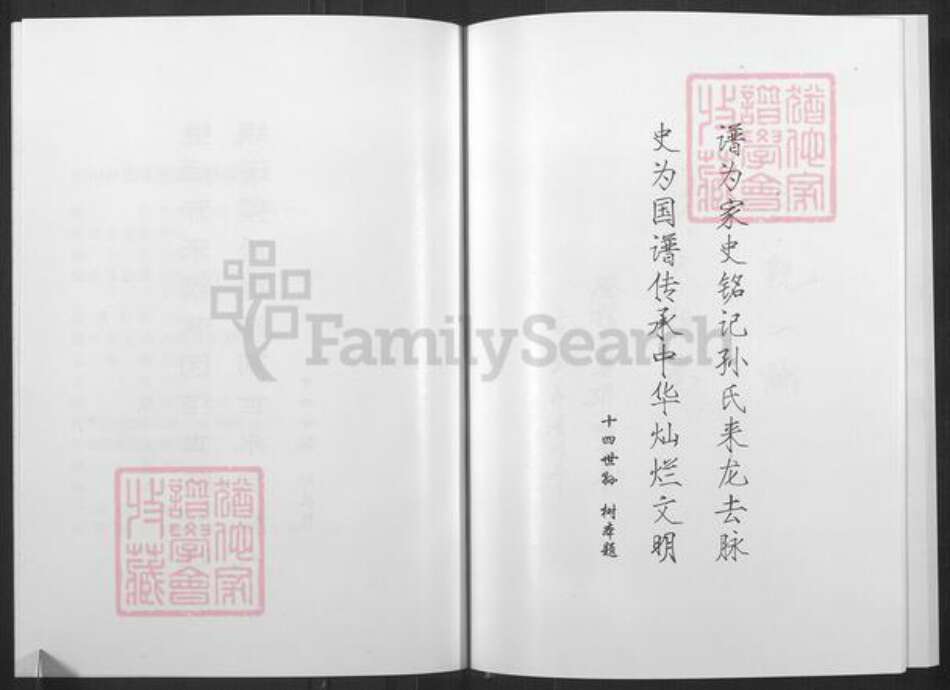 谱为家史铭记孙氏来龙去脉
史为国谱传承中华灿烂文明
十四世孙 树本题
猶他家譜學會收藏
猶他家譜學會收藏
FamilySearch